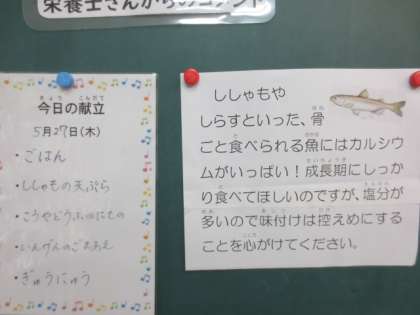 栄養士さんからのコメント
今日の献立
5月27日(木)
・ごはん
・ししゃもの天ぷら
・こうやどうふのにもの
・いんげんのごまあえ
・ぎゅうにゅう
ししゃもや
しらすといった、骨
ごと食べられる魚にはカルシウ
ムがいっぱい!成長期にしっか
り食べてほしいのですが、塩分が
多いので味付けは控えめにする
ことを心がけてください。